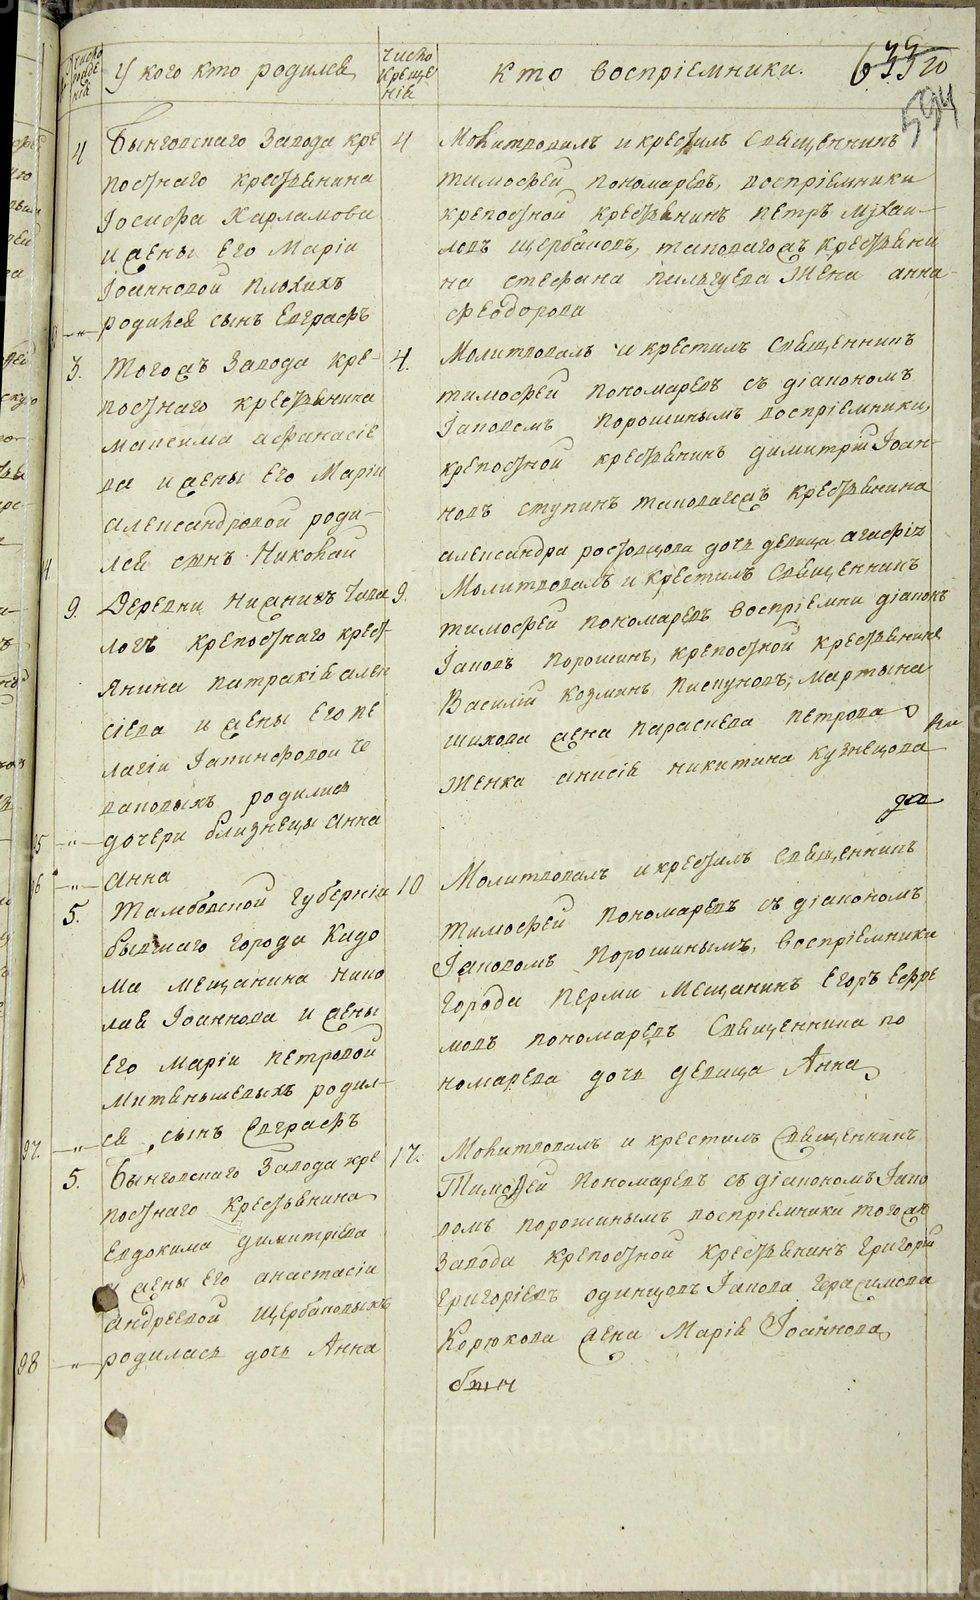 Число рожденій
У кого кто родился
Число крещенія
Кто воспріемники.
594
4
Бынговскаго Завода кре
постнаго крестьянина
Іосифа Харламова
и жены его Маріи
Іоанновой Плохихъ
родился сынъ Евграфъ
4
Молитвовалъ и крестилъ Священникъ
Тимофей Пономаревъ, воспріемники
крепостной крестьянинъ Петръ Михаи-
ловъ Щербаковъ, таковагожъ крестьяни
на Стефана Пильгуева жена Анна
Феодорова
3.
Тогожъ Завода кре-
постнаго крестьянина
Максима Афанасіе
ва и жены его Маріи
Александровой роди-
лся сынъ Николай
4.
Молитвовалъ и крестилъ Священникъ
Тимофей Пономаревъ съ діакономъ
Іаковомъ Порошинымъ воспріемники,
крепостной крестьянинъ Димитрій Іоан-
новъ Ступинъ таковагожъ крестьянина
Александра Ростовцова дочь девица Агафія
9.
Деревни Нижнихъ Таво
логъ крепостнаго крест-
янина Патракія Алек
сіева и жены его Пе
лагіи Іакинфовой Че
ваковыхъ родились
95
дочери близнецы Анна
96
Анна
9.
Молитвовалъ и крестилъ Священникъ
Тимофей Пономаревъ воспріемни діаконъ
Іаковъ Порошинъ, крепостной крестьянинъ
Василій Козминъ Пискуновъ, Мартына
Шихова жена Параскева Петрова
женка Анисія Никитина Кузнецова
5.
Тамбовской Губерніи
бывшаго города Кадо
ма мещанина Нико
лая Іоаннова и жены
его Маріи Петровой
Митякышевыхъ родил-
97.
ся сынъ Евграфъ
10
Молитвовалъ и крестилъ Священникъ
Тимофей Пономаревъ съ діакономъ
Іаковомъ Порошинымъ, воспріемники
города Перми мещанинъ Егоръ Ефре
мовъ Пономаревъ Священника По
номарева дочь девица Анна
5.
Бынговскаго Завода кре
постнаго крестьянина
Евдокима Димитріева
и жены его Анастасіи
Андреевой Щербаковыхъ
98
родилась дочь Анна
17.
Молитвовалъ и крестилъ Священникъ
Тимофей Пономаревъ съ діакономъ Іако
вомъ Порошинымъ воспріемники тогожъ
Завода крепостной крестьянинъ Григорій
Григоріевъ Одинцовъ Іакова Герасимова
Корюкова жена Марія Іоаннова
METRIKI.GASO-URAL.RU